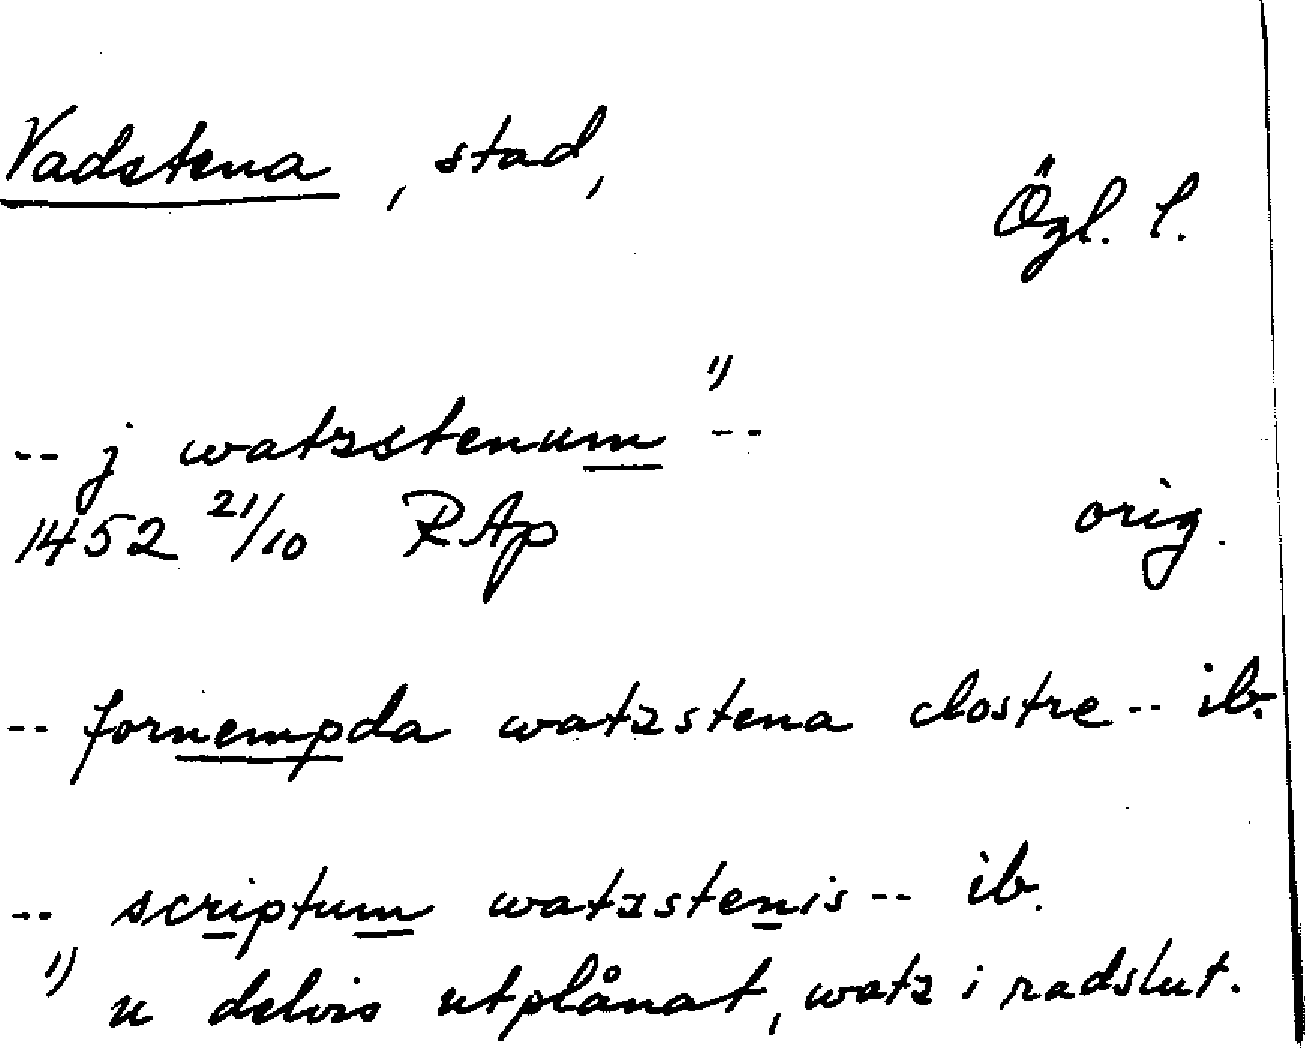 Vadstena, stad,
Ögl. l.
-- j watzstenum 1) --
1452 21/10 RAp orig.
-- fornempda watzstena clostre -- ib.
-- scriptum watzstenis -- ib.
1) u delvis utplånat, watz i radslut.